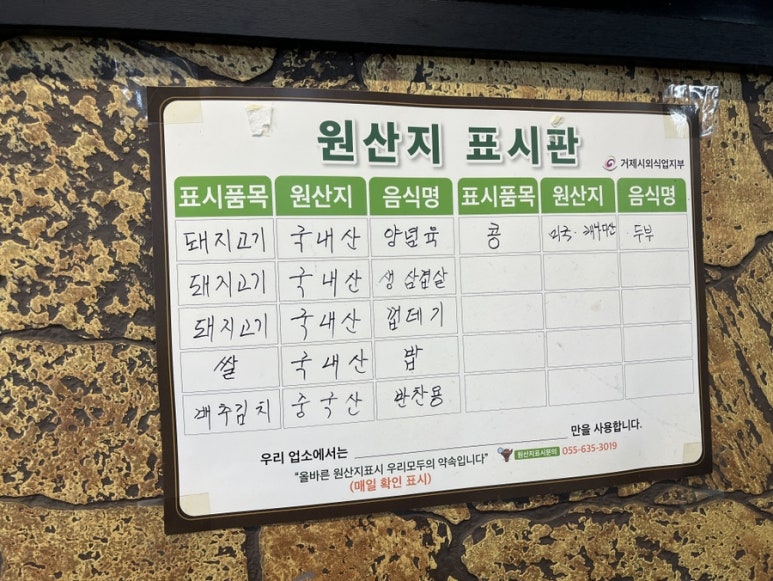 원산지 표시판
거제시외식업지부
표시품목 원산지 음식명 표시품목 원산지 음식명
돼지고기 국내산 양념육 콩 미국·캐나다산 두부
돼지고기 국내산 생삼겹살
돼지고기 국내산 껍데기
쌀 국내산 밥
배추김치 중국산 반찬용
우리 업소에서는 만을 사용합니다.
"올바른 원산지표시 우리모두의 약속입니다" 원산지표시문의 055-635-3019
(매일 확인 표시)